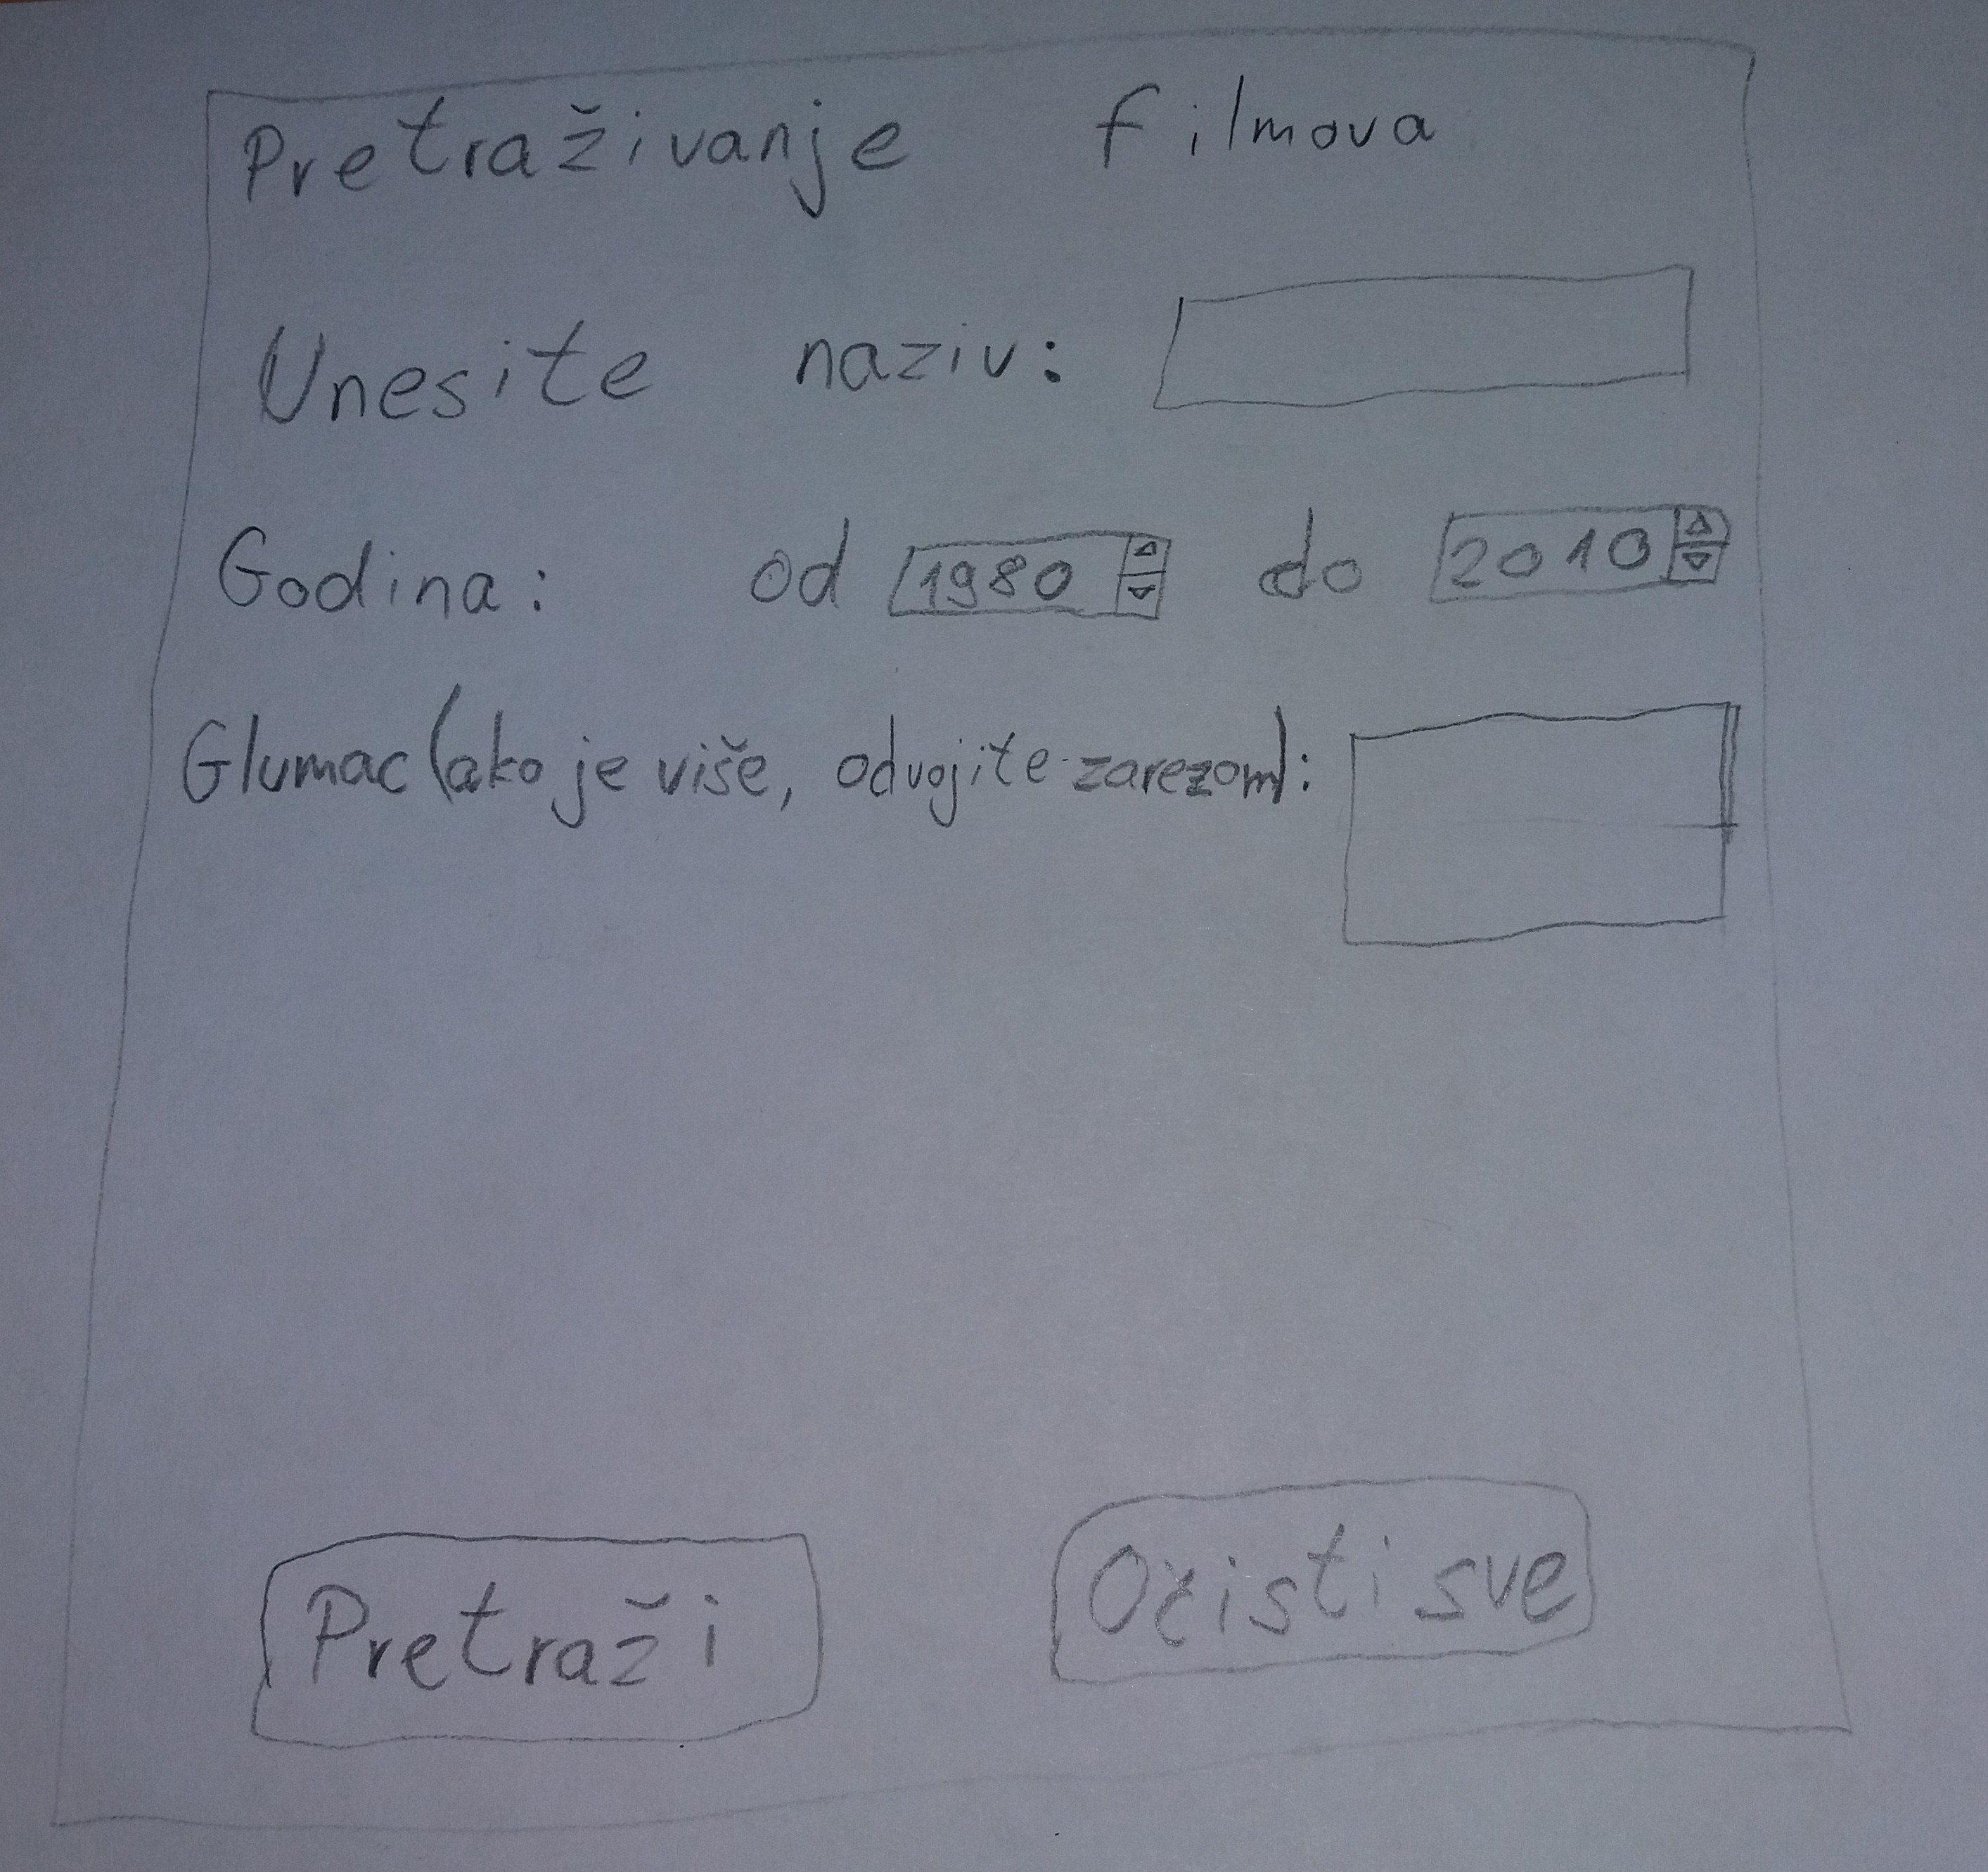 Pretraživanje filmova
Unesite naziv:
Godina: od 1980 do 2010
Glumac (ako je više, odvojite zarezom):
Pretraži Očisti sve